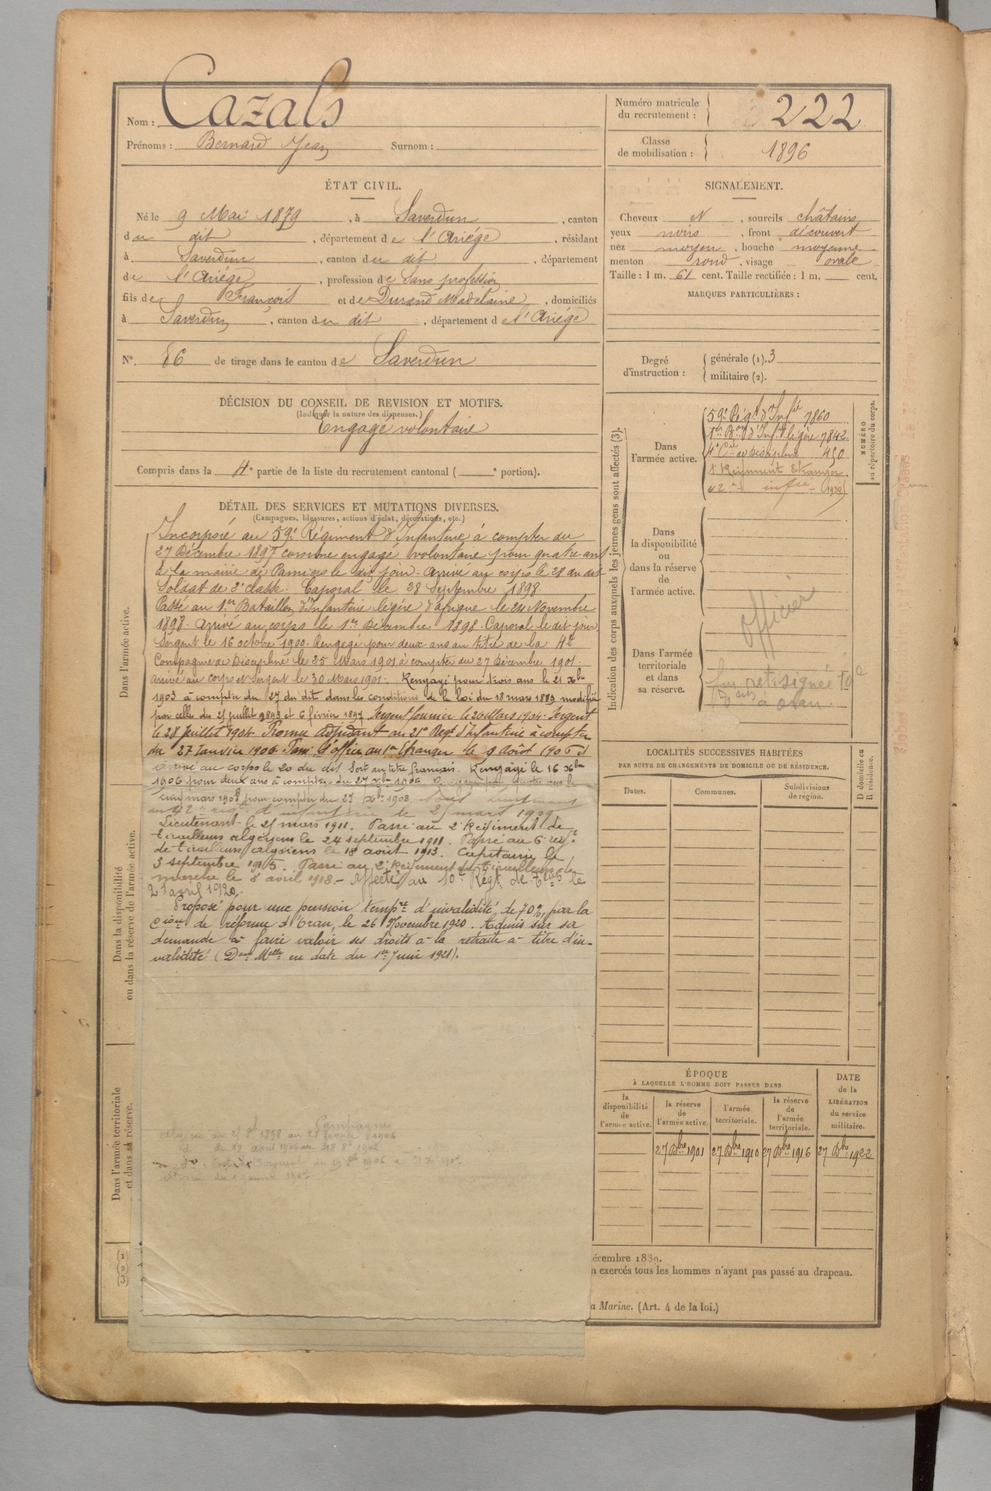 Nom : Cazals
Prénoms : Bernard Jean Surnom :
Numéro matricule du recrutement : 222
Classe de mobilisation : 1896
ÉTAT CIVIL.
Né le 9 Mai 1879, à Saverdun, canton
du dit, département de l'Ariége, résidant
à Saverdun, canton du dit, département
de l'Ariége, profession de Sans profession
fils de François et de Durand Madelaine, domiciliés
à Saverdun, canton du dit, département de l'Ariége
N° 86 de tirage dans le canton de Saverdun
DÉCISION DU CONSEIL DE REVISION ET MOTIFS.
(Indiquer la nature des dispenses.)
Engagé volontaire
Compris dans la 4e partie de la liste du recrutement cantonal ( e portion).
SIGNALEMENT.
Cheveux N, sourcils châtains
yeux noirs, front découvert
nez moyen, bouche moyenne
menton rond, visage ovale
Taille : 1 m. 61 cent. Taille rectifiée : 1 m. cent.
MARQUES PARTICULIÈRES :
Degré d'instruction :
générale (1). 3
militaire (2).
DÉTAIL DES SERVICES ET MUTATIONS DIVERSES.
(Campagnes, blessures, actions d'éclat, décorations, etc.)
Dans l'armée active.
Incorporé au 59e Régiment d'Infanterie à compter du
27 Décembre 1897 comme engagé volontaire pour quatre ans
à la mairie de Pamiers le dit jour. Arrivé au corps le 28 du dit
Soldat de 2e classe. Caporal le 28 Septembre 1898
Passé au 1er Bataillon d'Infanterie légère d'Afrique le 24 Novembre
1898. Arrivé au corps le 1er Décembre 1898. Caporal le dit jour
Sergent le 16 octobre 1900. Rengagé pour deux ans au titre de la 4e
Compagnie de Discipline le 25 Mars 1901 à compter du 27 Décembre 1901.
Arrivé au corps et Sergent le 30 Mars 1901. Rengagé pour trois ans le 21 Xbre
1903 à compter du 27 du dit dans les conditions de la loi du 18 mars 1889 modifiée
par celles des 25 juillet 1893 et 6 février 1897. Sergent fourrier le 20 Mars 1904. Sergent
le 28 Juillet 1904. Promu Adjudant au 21e Régt d'Infanterie à compter
du 27 Janvier 1906. Pass. d'office au 1er Etranger le 9 Août 1906
arrivé au corps le 20 du dit Sert au titre français. Rengagé le 16 Xbre
1906 pour deux ans à compter du 27 Xbre 1906.
mars 1908 pour compter du 27 Xbre 1908.
au 42e rég d'infanterie le 25 mars 1909
Lieutenant le 25 mars 1911. Passé au 2e Régiment de
tirailleurs algériens le 24 septembre 1911. Passé au 6e rég.
de tirailleurs algériens le 18 août 1913. Capitaine le
3 septembre 1915. Passé au 2e Régiment de tirailleurs de
marche le 8 avril 1918. - Affecté au 10e Régt de Tirrs le
21 avril 1920.
Proposé pour une pension tempre d'invalidité de 70% par la
Cion de réforme d'Oran, le 26 Novembre 1920. Admis sur sa
demande à faire valoir ses droits à la retraite à titre d'in-
validité (Don Melle en date du 1er Juin 1921).
Dans la disponibilité
ou dans la réserve de l'armée active.
Dans l'armée territoriale
et dans sa réserve.
Campagne
Indication des corps auxquels les jeunes gens sont affectés (3).
NUMÉRO
au répertoire du corps.
Dans l'armée active.
59e Régt d'Infie 7860
1er Bon d'Inf légère 7842
4e Cie de Discipline 450
1er Régiment Etranger
42e infie
Dans la disponibilité ou dans la réserve de l'armée active.
Officier
Dans l'armée territoriale et dans sa réserve.
à Oran
LOCALITÉS SUCCESSIVES HABITÉES
PAR SUITE DE CHANGEMENTS DE DOMICILE OU DE RÉSIDENCE.
Dates. Communes. Subdivisions de région.
D domicile ou R résidence.
ÉPOQUE
À LAQUELLE L'HOMME DOIT PASSER DANS
la disponibilité de l'armée active.
la réserve de l'armée active.
l'armée territoriale.
la réserve de l'armée territoriale.
DATE de la LIBÉRATION du service militaire.
27 Xbre 1901 27 Xbre 1910 27 Xbre 1916 27 Xbre 1922
écembre 1889.
n exercés tous les hommes n'ayant pas passé au drapeau.
a Marine. (Art. 4 de la loi.)